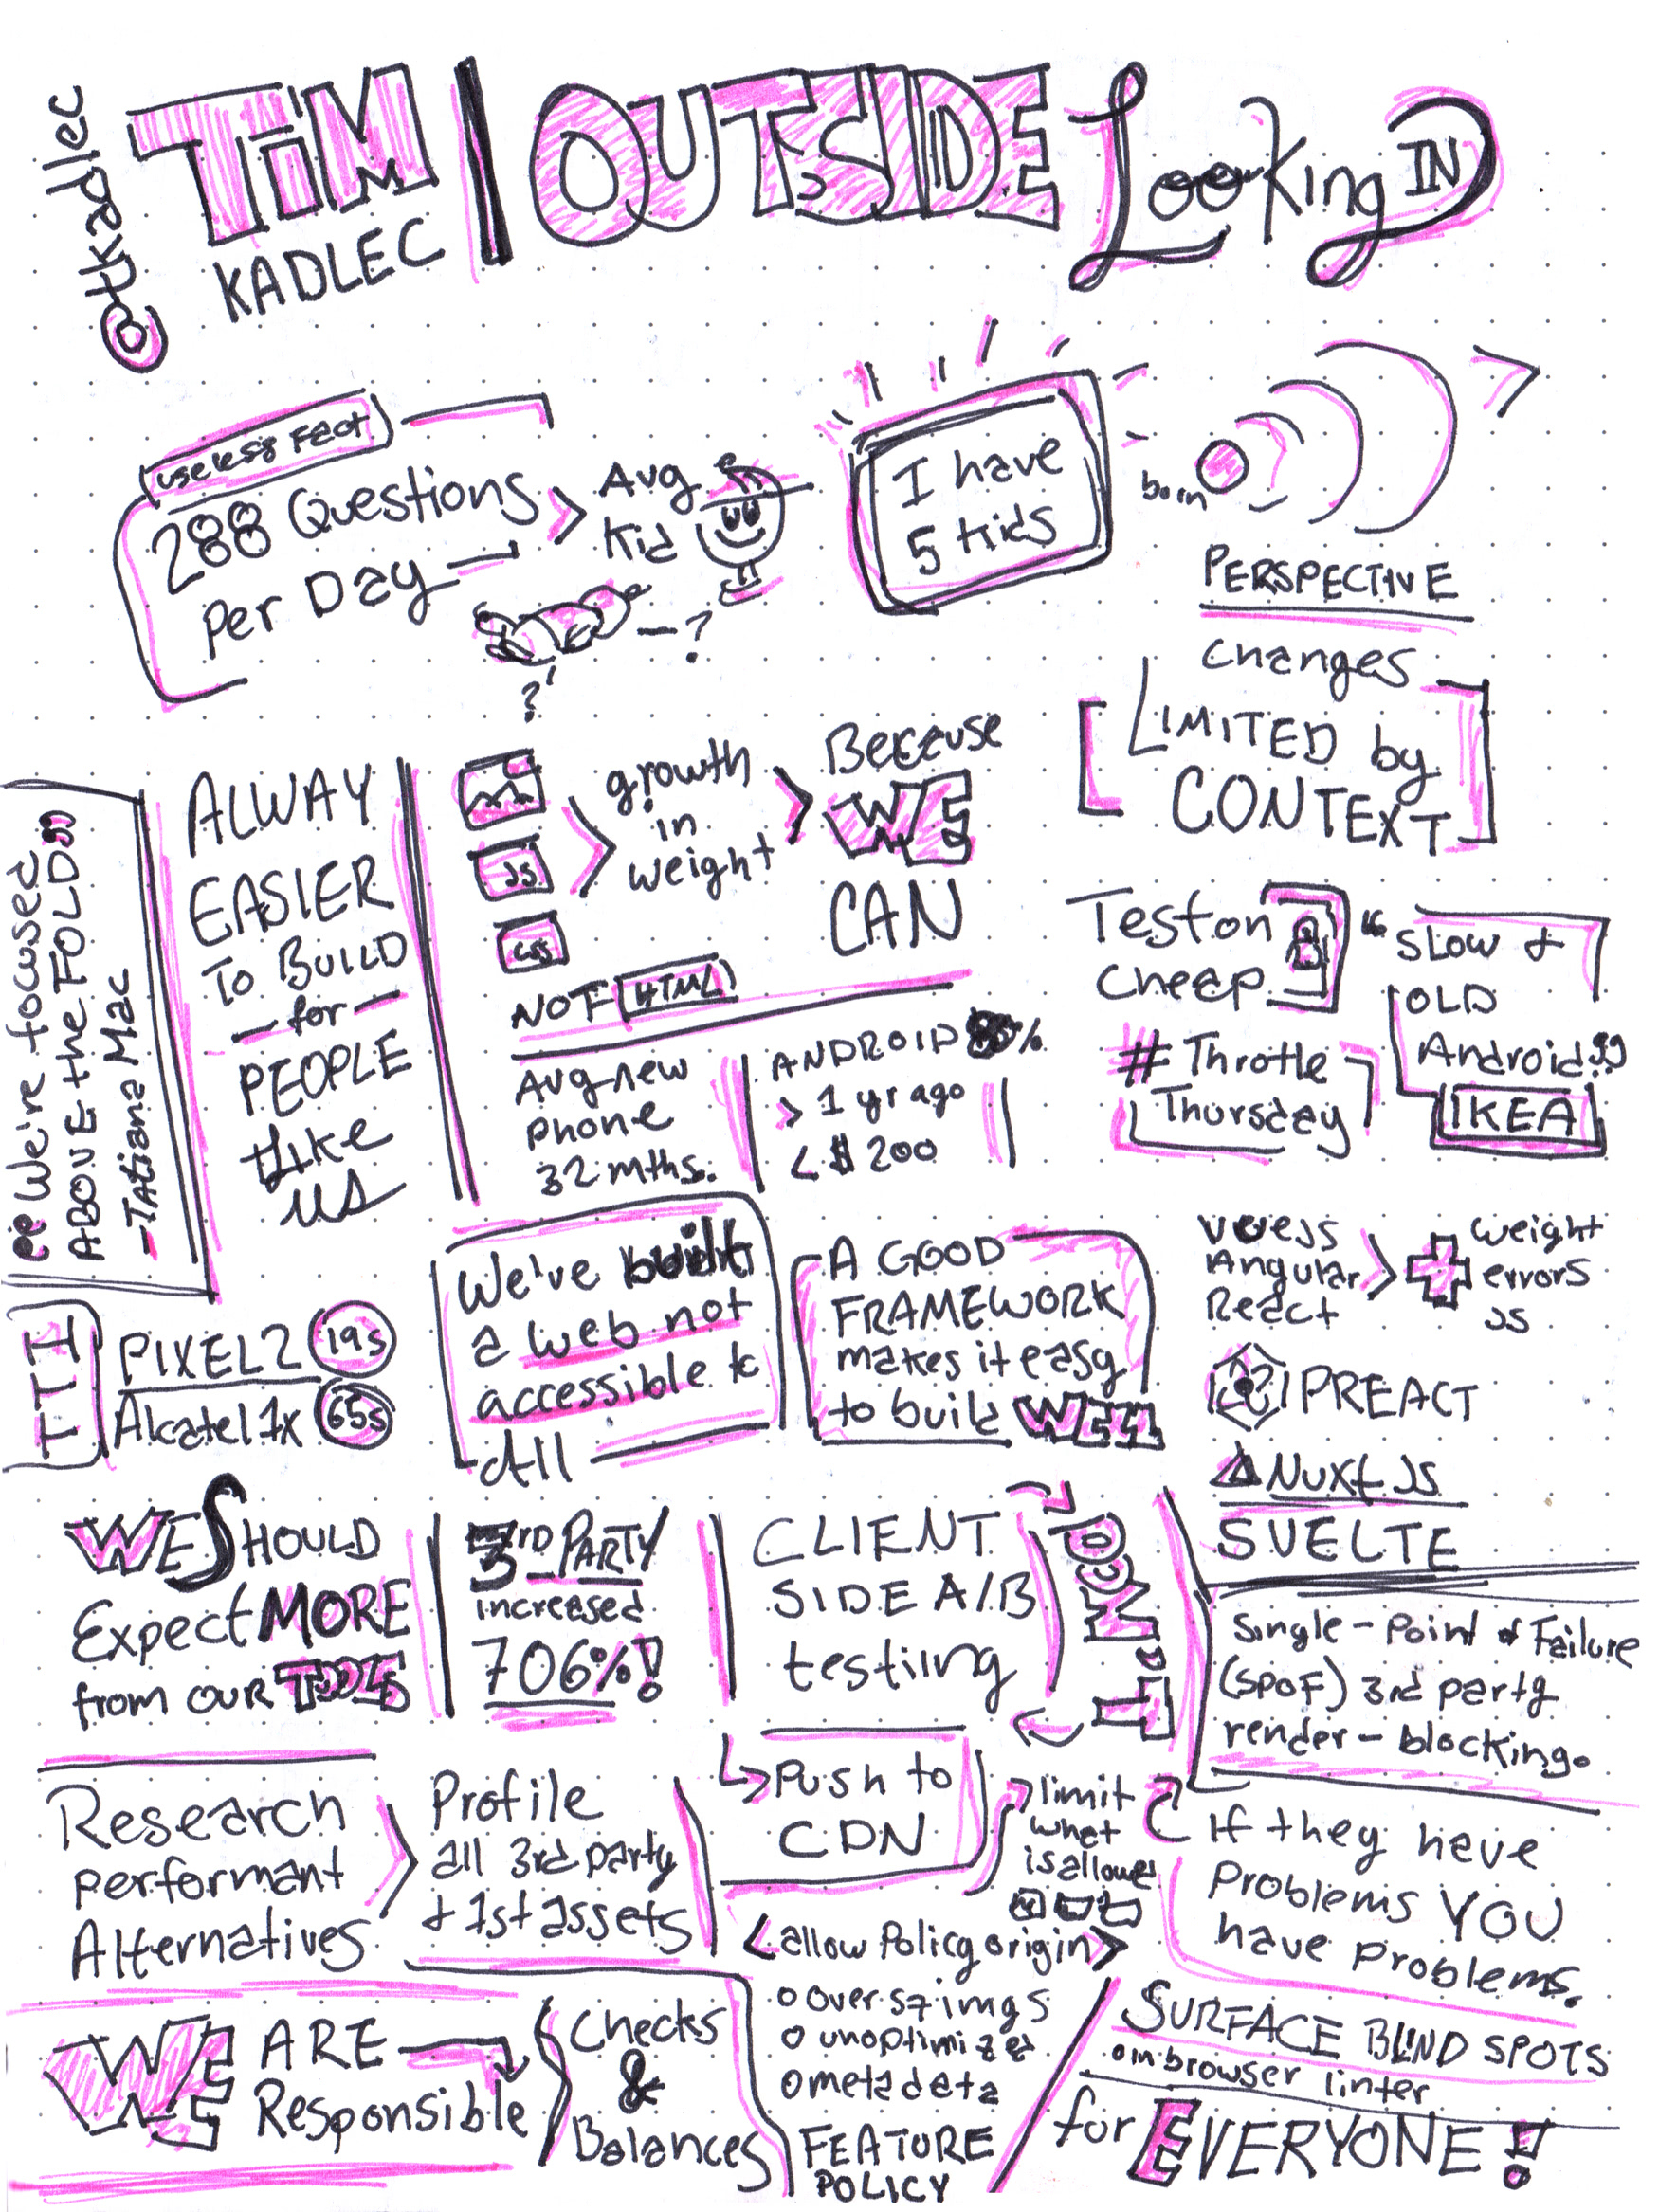 @tkadlec
TiM
KADLEC
OUTSIDE
Looking IN
useless Fact
288 Questions
Per Day
Avg
Kid
?
?
I have
5 kids
born
PERSPECTIVE
changes
LIMITED by
CONTEXT
We're focused
ABOVE the FOLD
- Tatiana Mac
ALWAY
EASIER
To BUILD
- for -
PEOPLE
like
us
JS
CSS
growth
in
weight
Because
WE
CAN
NOT HTML
Avg new
phone
32 mths.
ANDROID %
> 1 yr ago
< $ 200
Test on
cheap
# Throttle
Thursday
"Slow &
OLD
Android"
IKEA
TTI
PIXEL 2 19s
Alcatel 1x 65s
We've built
a web not
accessible to
all
A GOOD
FRAMEWORK
makes it easy
to build WELL
VueJS
Angular
React
weight
errors
JS
PREACT
Nuxt JS
SVELTE
WE SHOULD
Expect MORE
from OUR TOOLS
3RD PARTY
increased
706%!
CLIENT
SIDE A/B
testiing
Single-Point of Failure
(SPOF) 3rd party
render-blocking.
Research
performant
Alternatives
Profile
all 3rd party
+ 1st assets
Push to
CDN
limit
what
is allowed
If they have
Problems YOU
have problems.
<allow Policy origin>
o over sz imgs
o unoptimized
o metadata
FEATURE
POLICY
WE ARE
Responsible
Checks
&
Balances
SURFACE BLIND SPOTS
on browser linter
for EVERYONE!